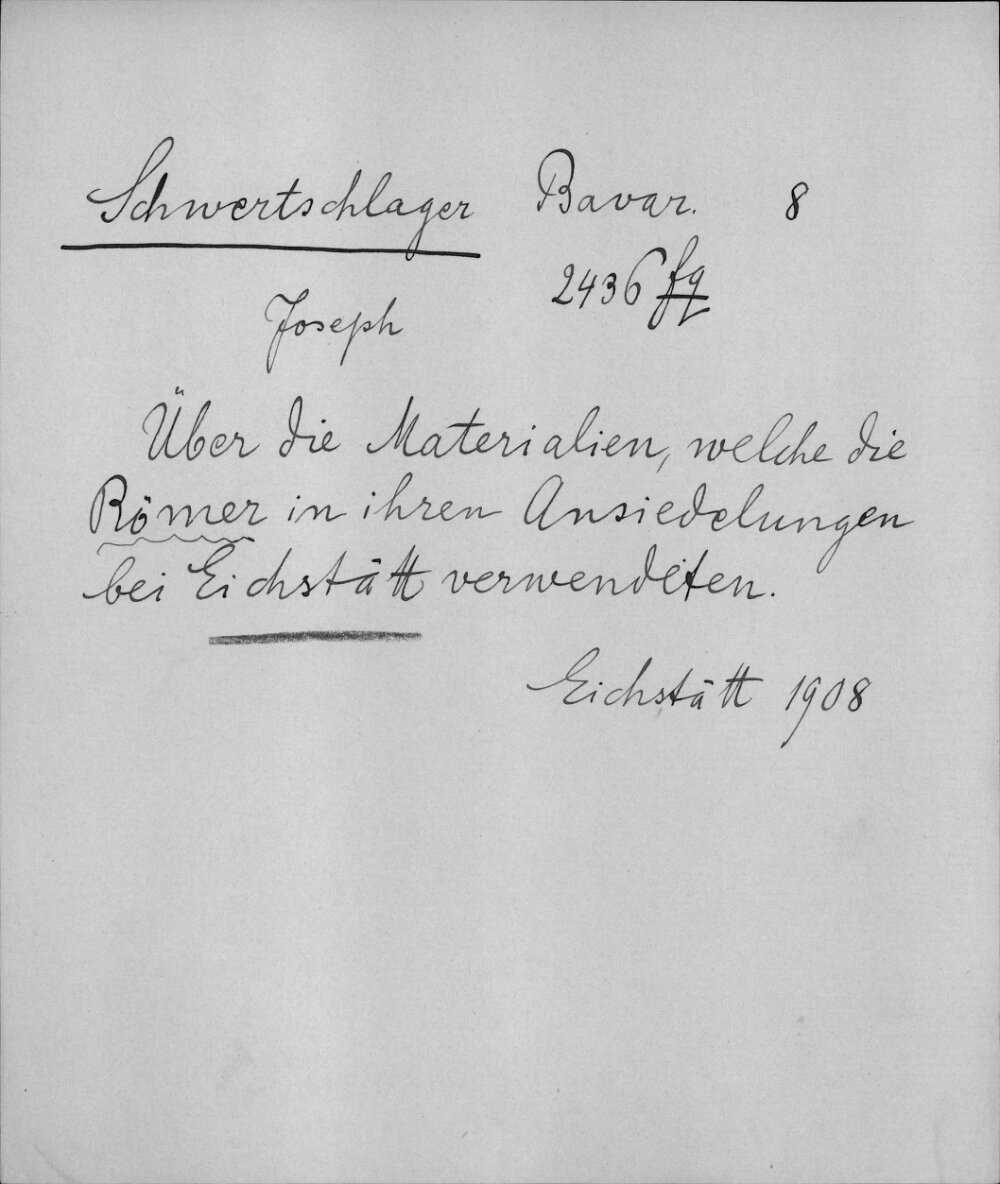 Schwertschlager Bavar. 8
Joseph 2436 fq
Über die Materialien, welche die
Römer in ihren Ansiedelungen
bei Eichstätt verwendeten.
Eichstätt 1908